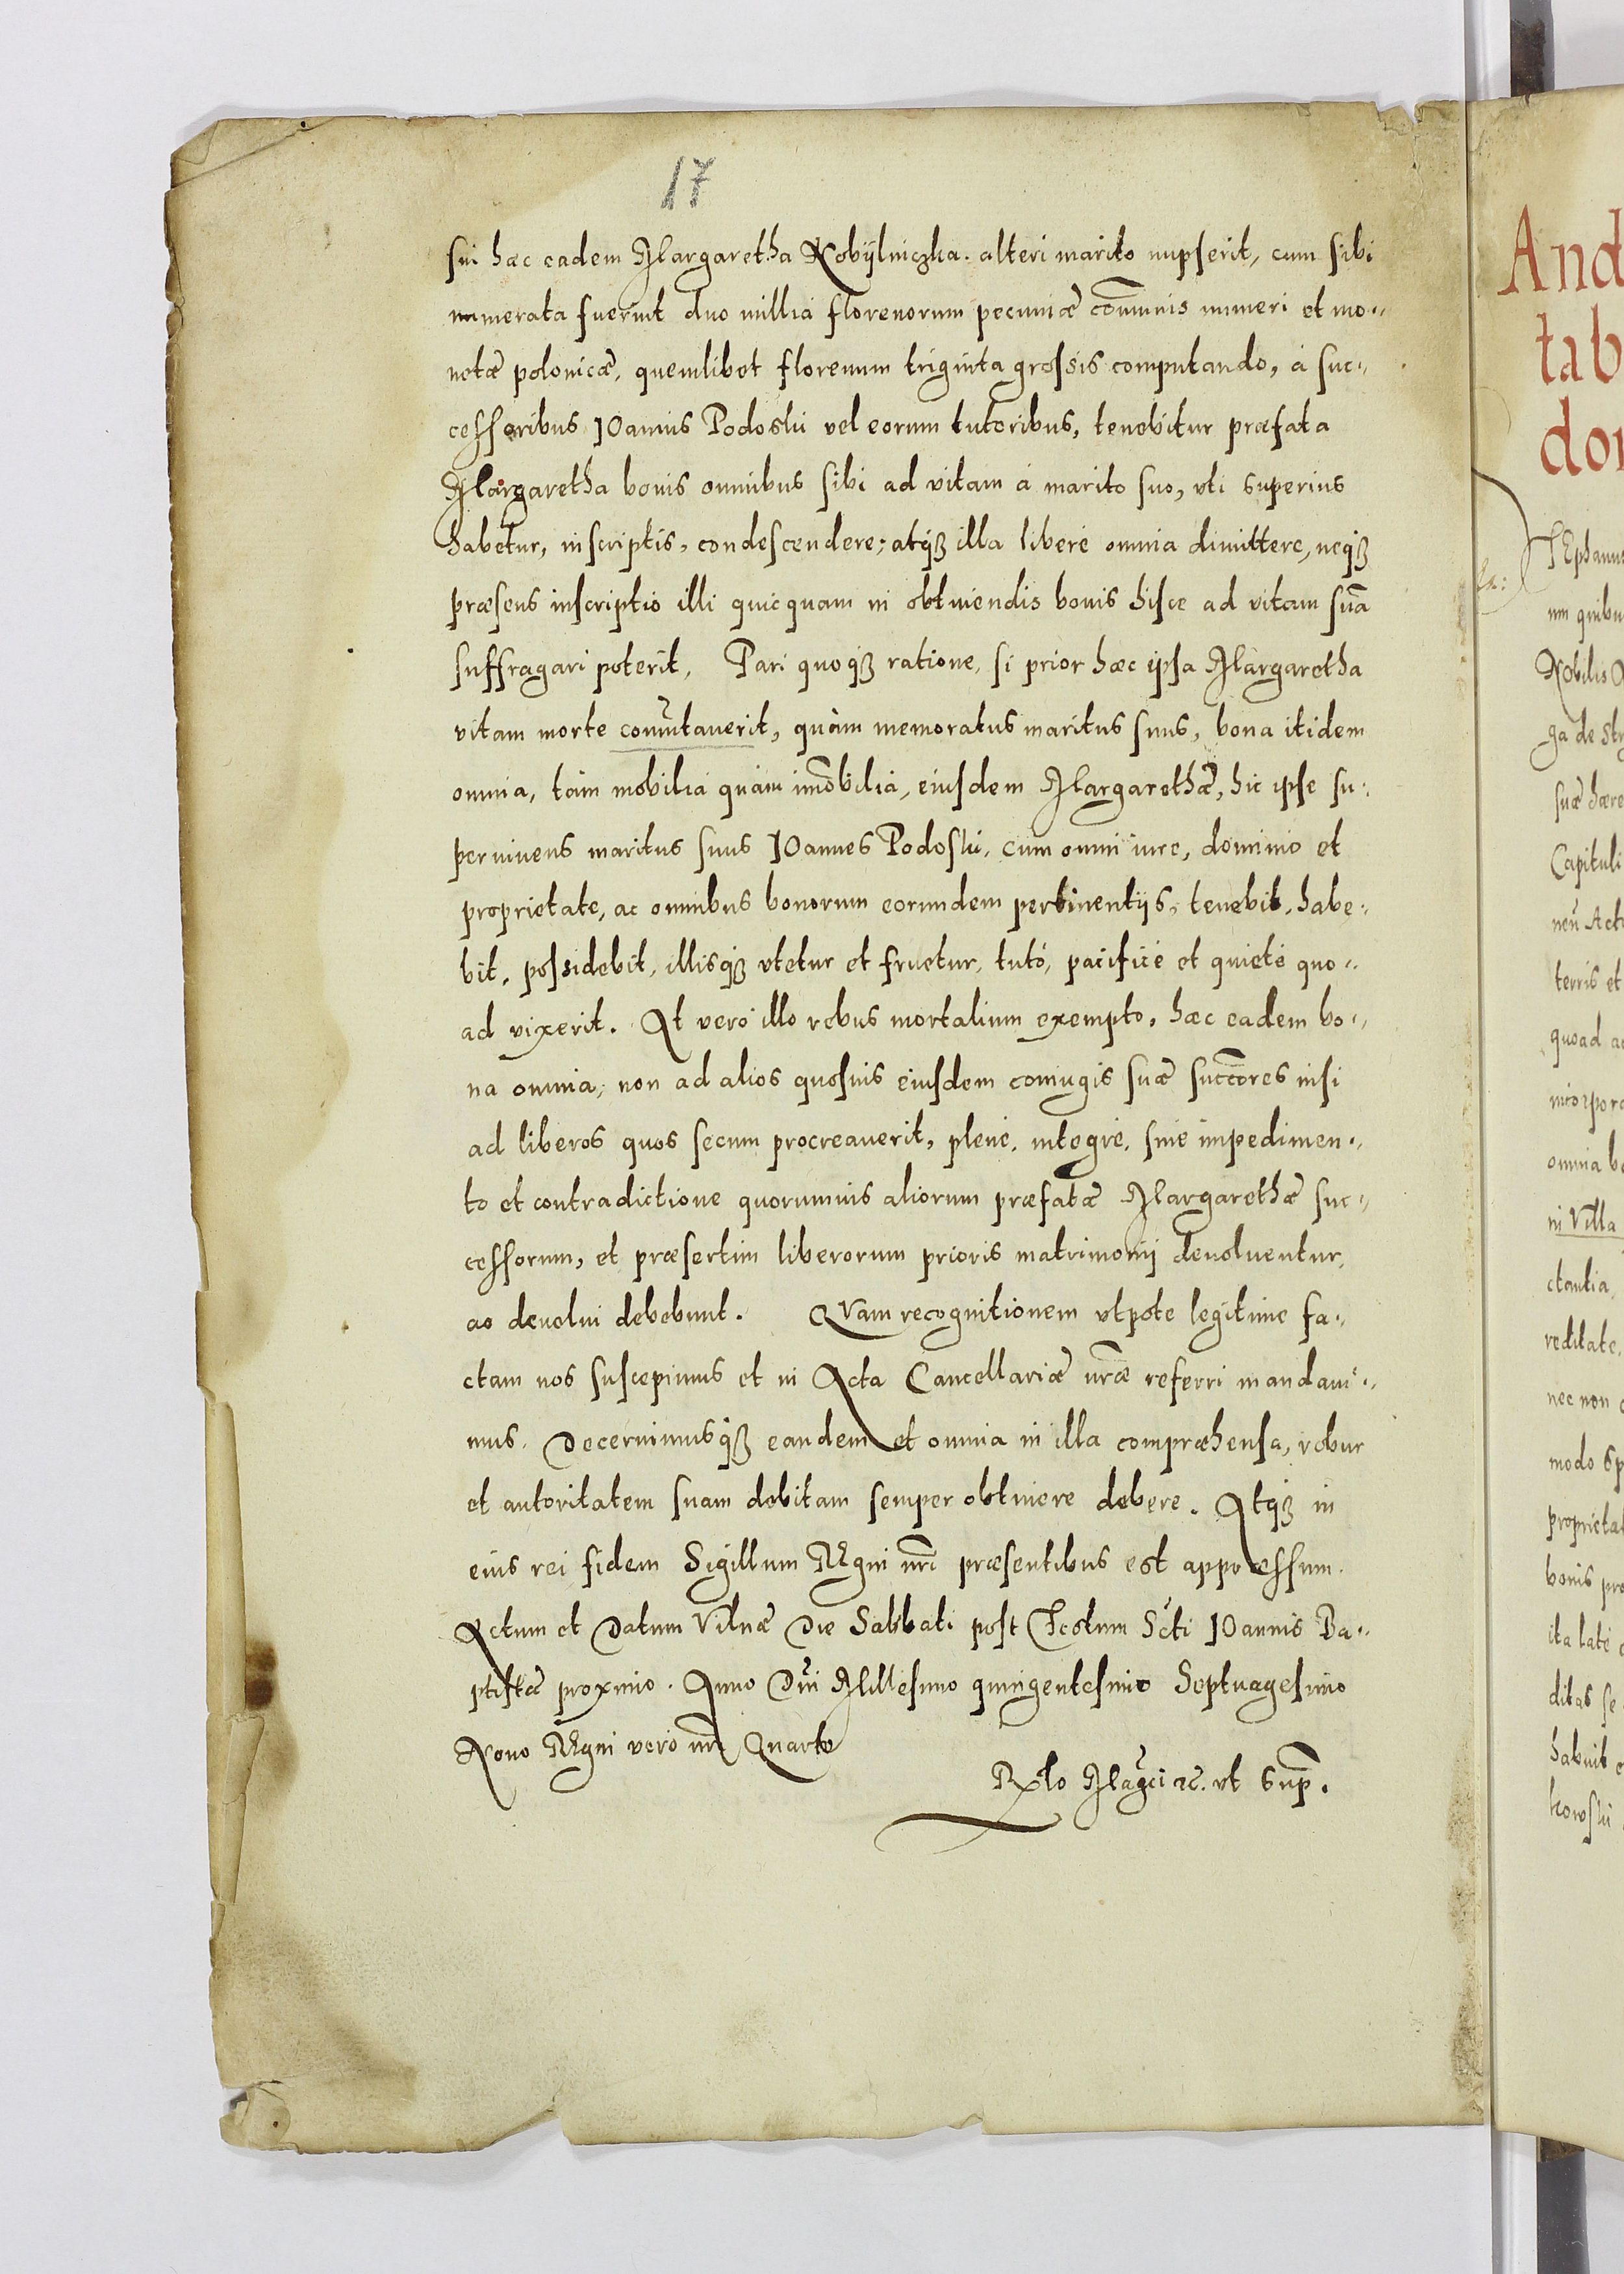 17
sui hæc eadem Margaretha Kobÿlniczka. alteri marito nupserit, cum sibi
numerata fuerint duo millia florenorum pecuniæ com̃unis numeri et mo-
netæ polonicæ, quemlibet florenum triginta grossis computando, à suc-
cessoribus IOannis Podoski vel eorum tutoribus, tenebitur præfata
Margaretha bonis omnibus sibi ad vitam à marito suo, vti superius
habetur, inscriptis, condescendere, atq3 illa liberè omnia dimittere, neq3
præsens inscriptio illi quicquam in obtinendis bonis hisce ad vitam suã
suffragari poterit, Pari quoq3 ratione, si prior hæc ipsa Margaretha
vitam morte com̃utauerit, quàm memoratus maritus suus, bona itidem
omnia, tàm mobilia quàm im̃obilia, eiusdem Margarethæ, hic ipse su-
peruiuens maritus suus IOannes Podoski, cum omni iure, dominio et
proprietate, ac omnibus bonorum eorundem pertinentijs, tenebit, habe-
bit, possidebit, illisq3 vtetur et fruetur, tutò, pacificè et quietè quo-
ad vixerit. At verò illo rebus mortalium exempto, hæc eadem bo-
na omnia, non ad alios quosuis eiusdem coniugis suæ succẽores nisi
ad liberos quos secum procreauerit, plenè, integrè, sine impedimen-
to et contradictione quorumuis aliorum præfatæ Margarethæ suc-
cessorum, et præsertim liberorum prioris matrimonij deuoluentur,
ac deuolui debebunt. QVam recognitionem vtpote legitimè fa-
ctam nos suscepimus et in Acta Cancellariæ nr̃æ referri mandaui-
mus. Decernimusq3 eandem et omnia in illa compræhensa, robur
et autoritatem suam debitam semper obtinere debere. Atq3 in
eius rei fidem Sigillum REgni nr̃i præsentibus est appræssum.
Actum et Datum Vilnæ Die Sabbati post Festum Sc̃ti IOannis Ba-
ptistæ proximo. Anno Dñi Millesimo quingentesimo Septuagesimo
Nono REgni verò nr̃i Quarto
Relo Magci ac. vt Sup̃.
And
tab
dor
TEphanus
um quibu
NObilis
ga de Str
suæ hære
Capituli
neũ Act
terris et
quoad
incorpor
omnia b
in Villa
ctantia,
reditate,
nec non
modo sp
proprieta
bonis pro
ita latè
ditas se
habuit
kowski